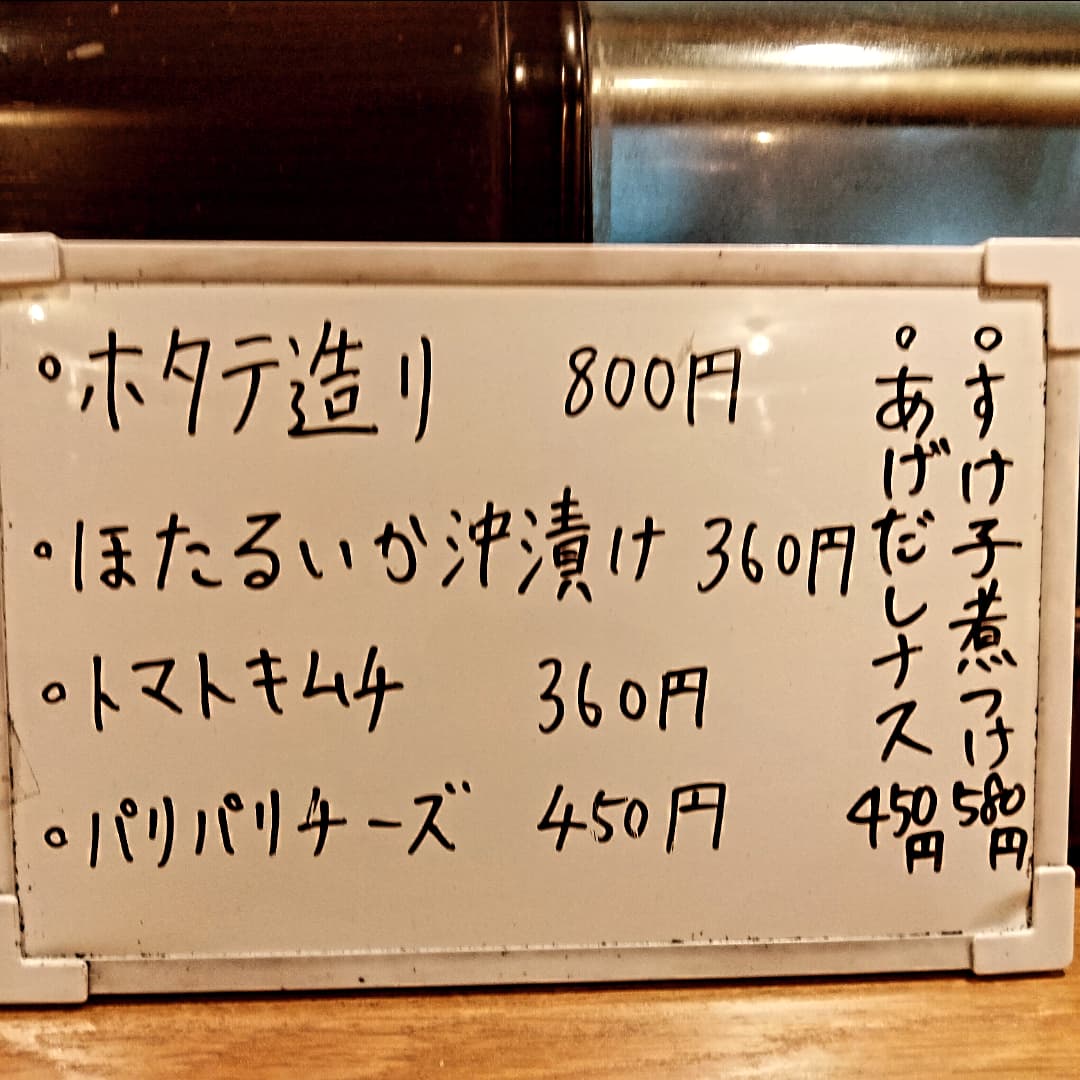 ホタテ造り 800円
ほたるいか沖漬け 360円
トマトキムチ 360円
パリパリチーズ 450円
すけ子煮つけ 580円
あげだしナス 450円